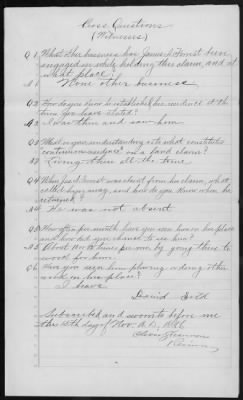 Cross Questions
(Witnesses)
Q 1 What other business has James Forrest been
engaged in while holding this claim, and at
what place?
A 1 None other business
Q 2 How do you know he established his residence at the
time you have stated?
A 2 I was there and saw him
Q 3 What is your understanding as to what constitutes
continuous residence on a land claim?
A 3 Living there all the time
Q 4 When James Forrest was absent from his claim, what
called him away, and how do you know when he
returned?
A 4 He was not absent
Q 5 How often per month have you seen him on his place
and how did you chance to see him?
A 5 About 10 or times per mo. by going there to
work for him
Q 6 Have you seen him plowing or doing other
work on his place?
I have
David
Subscribed and sworn to before me
this 15th day of Nov. A.D. 1886